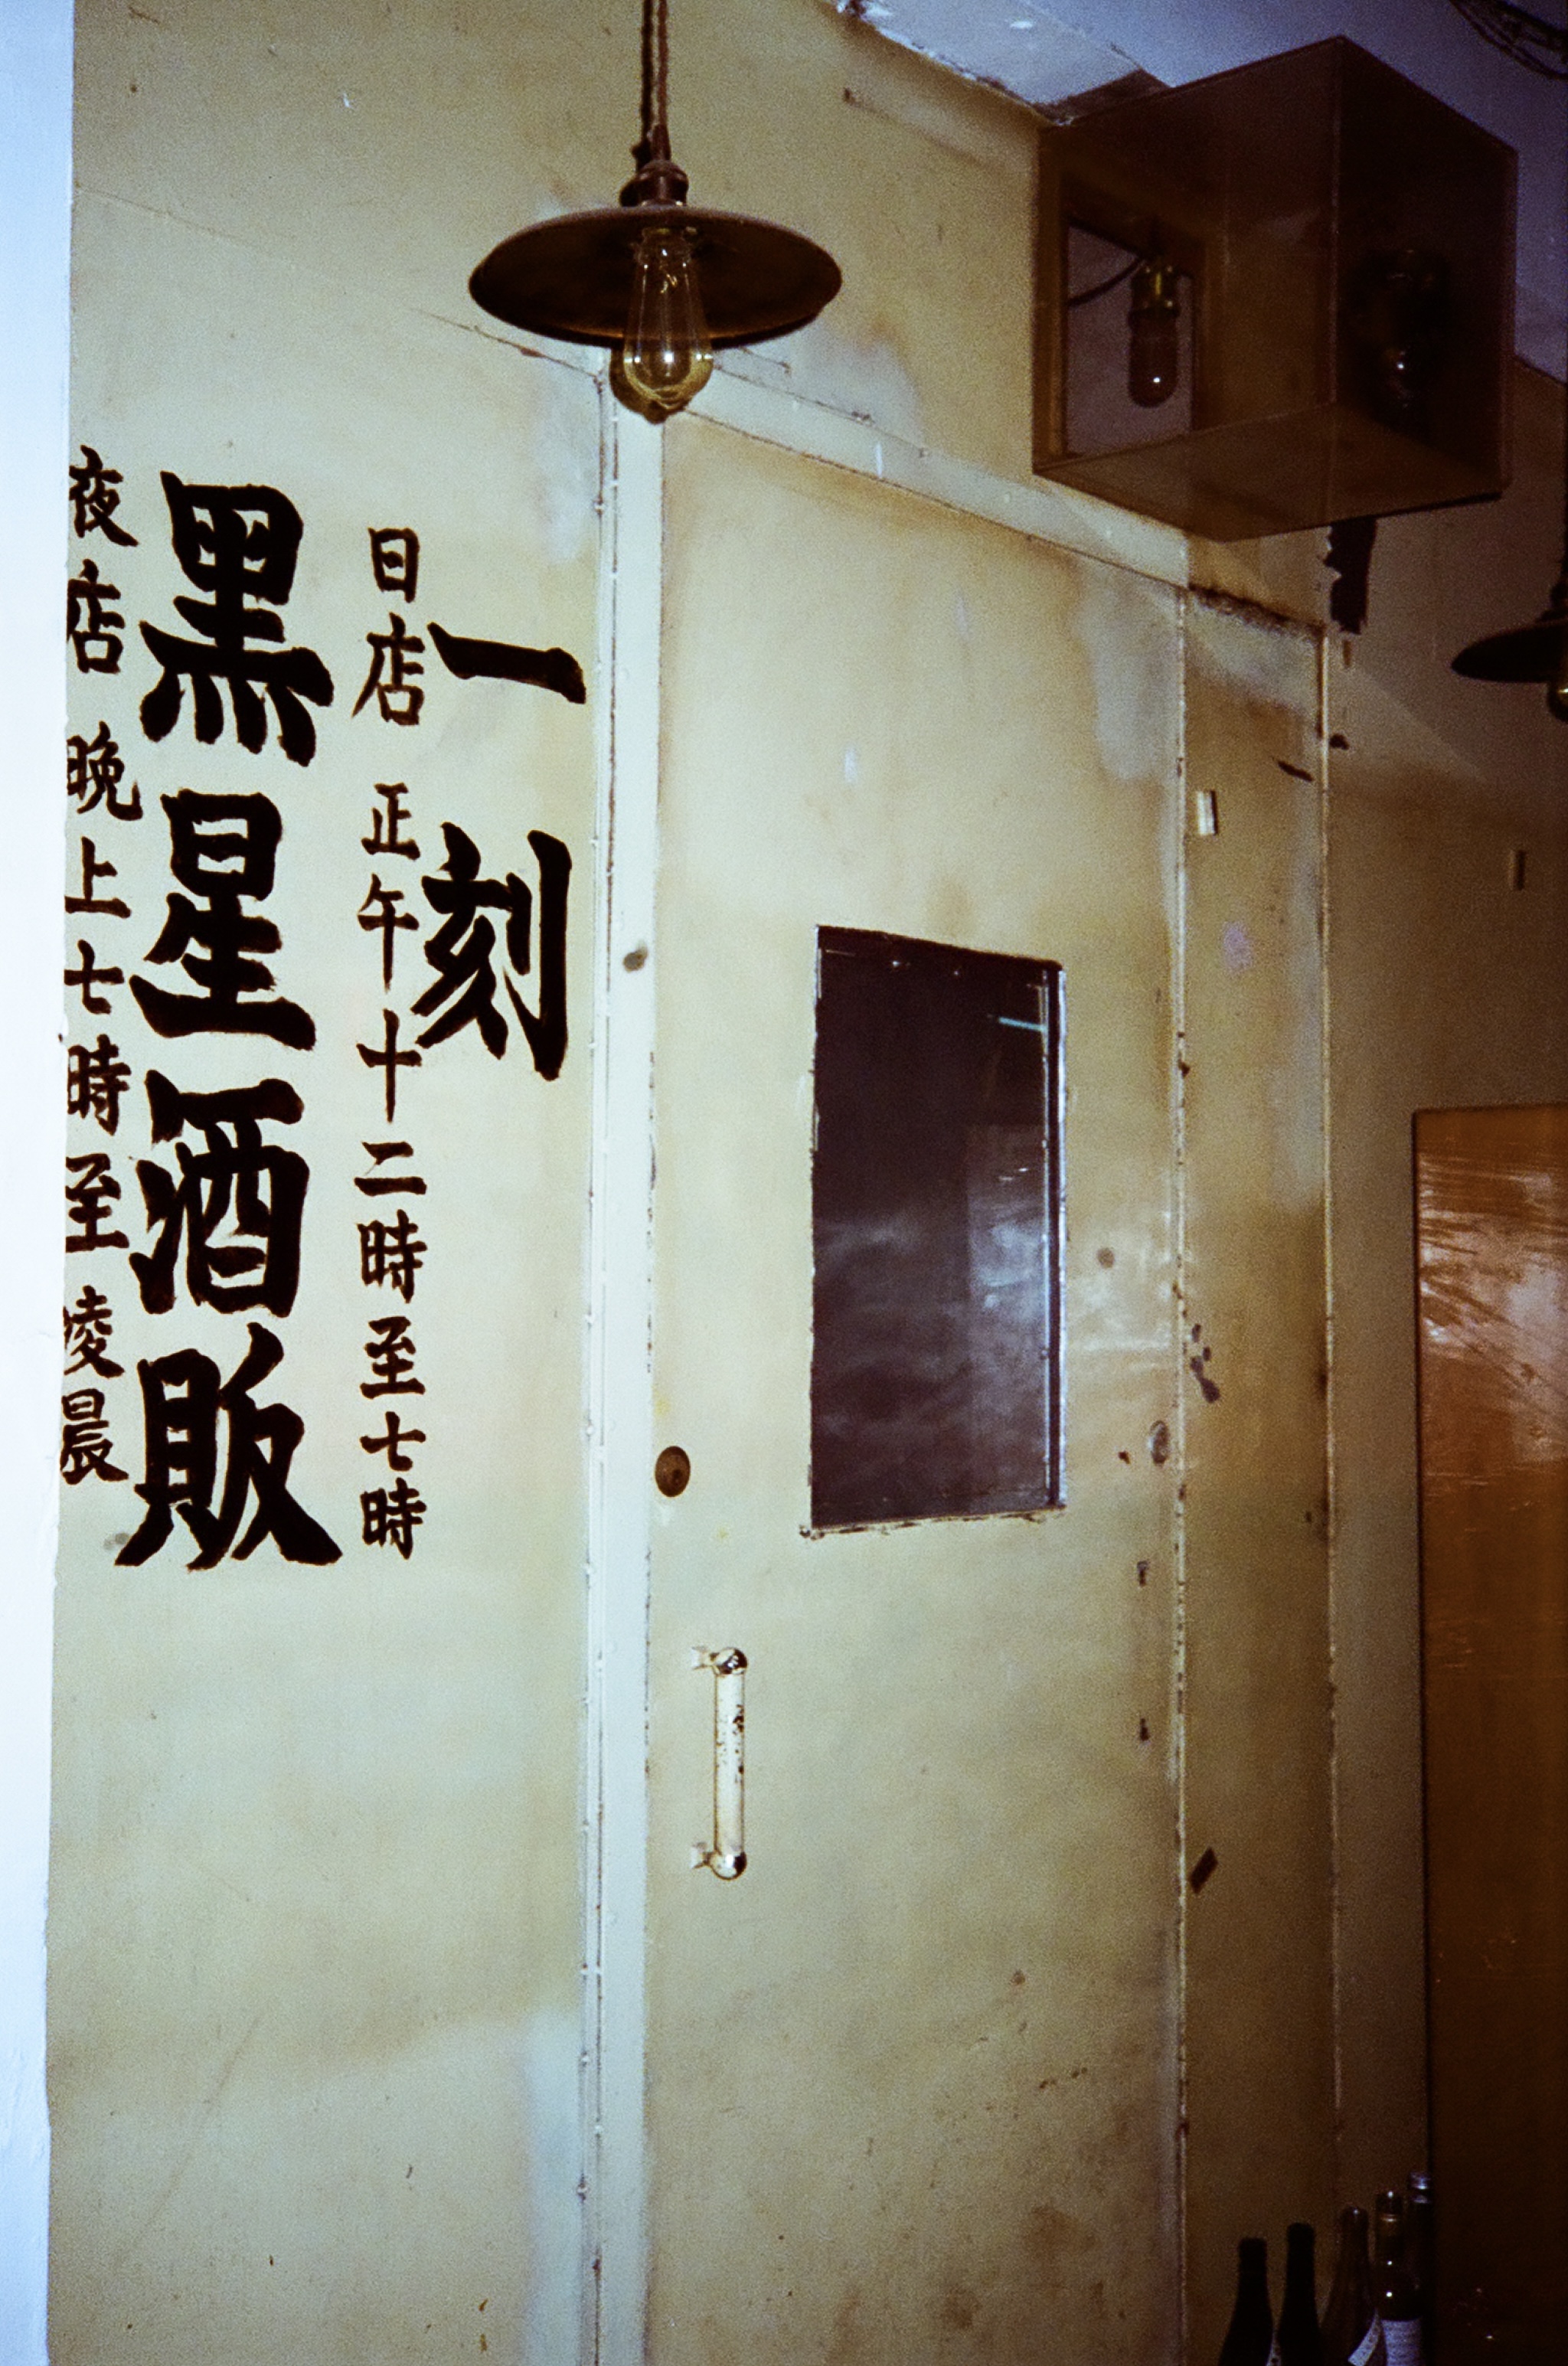 一刻
日店 正午十二時至七時
黑星酒販
夜店 晚上七時至凌晨